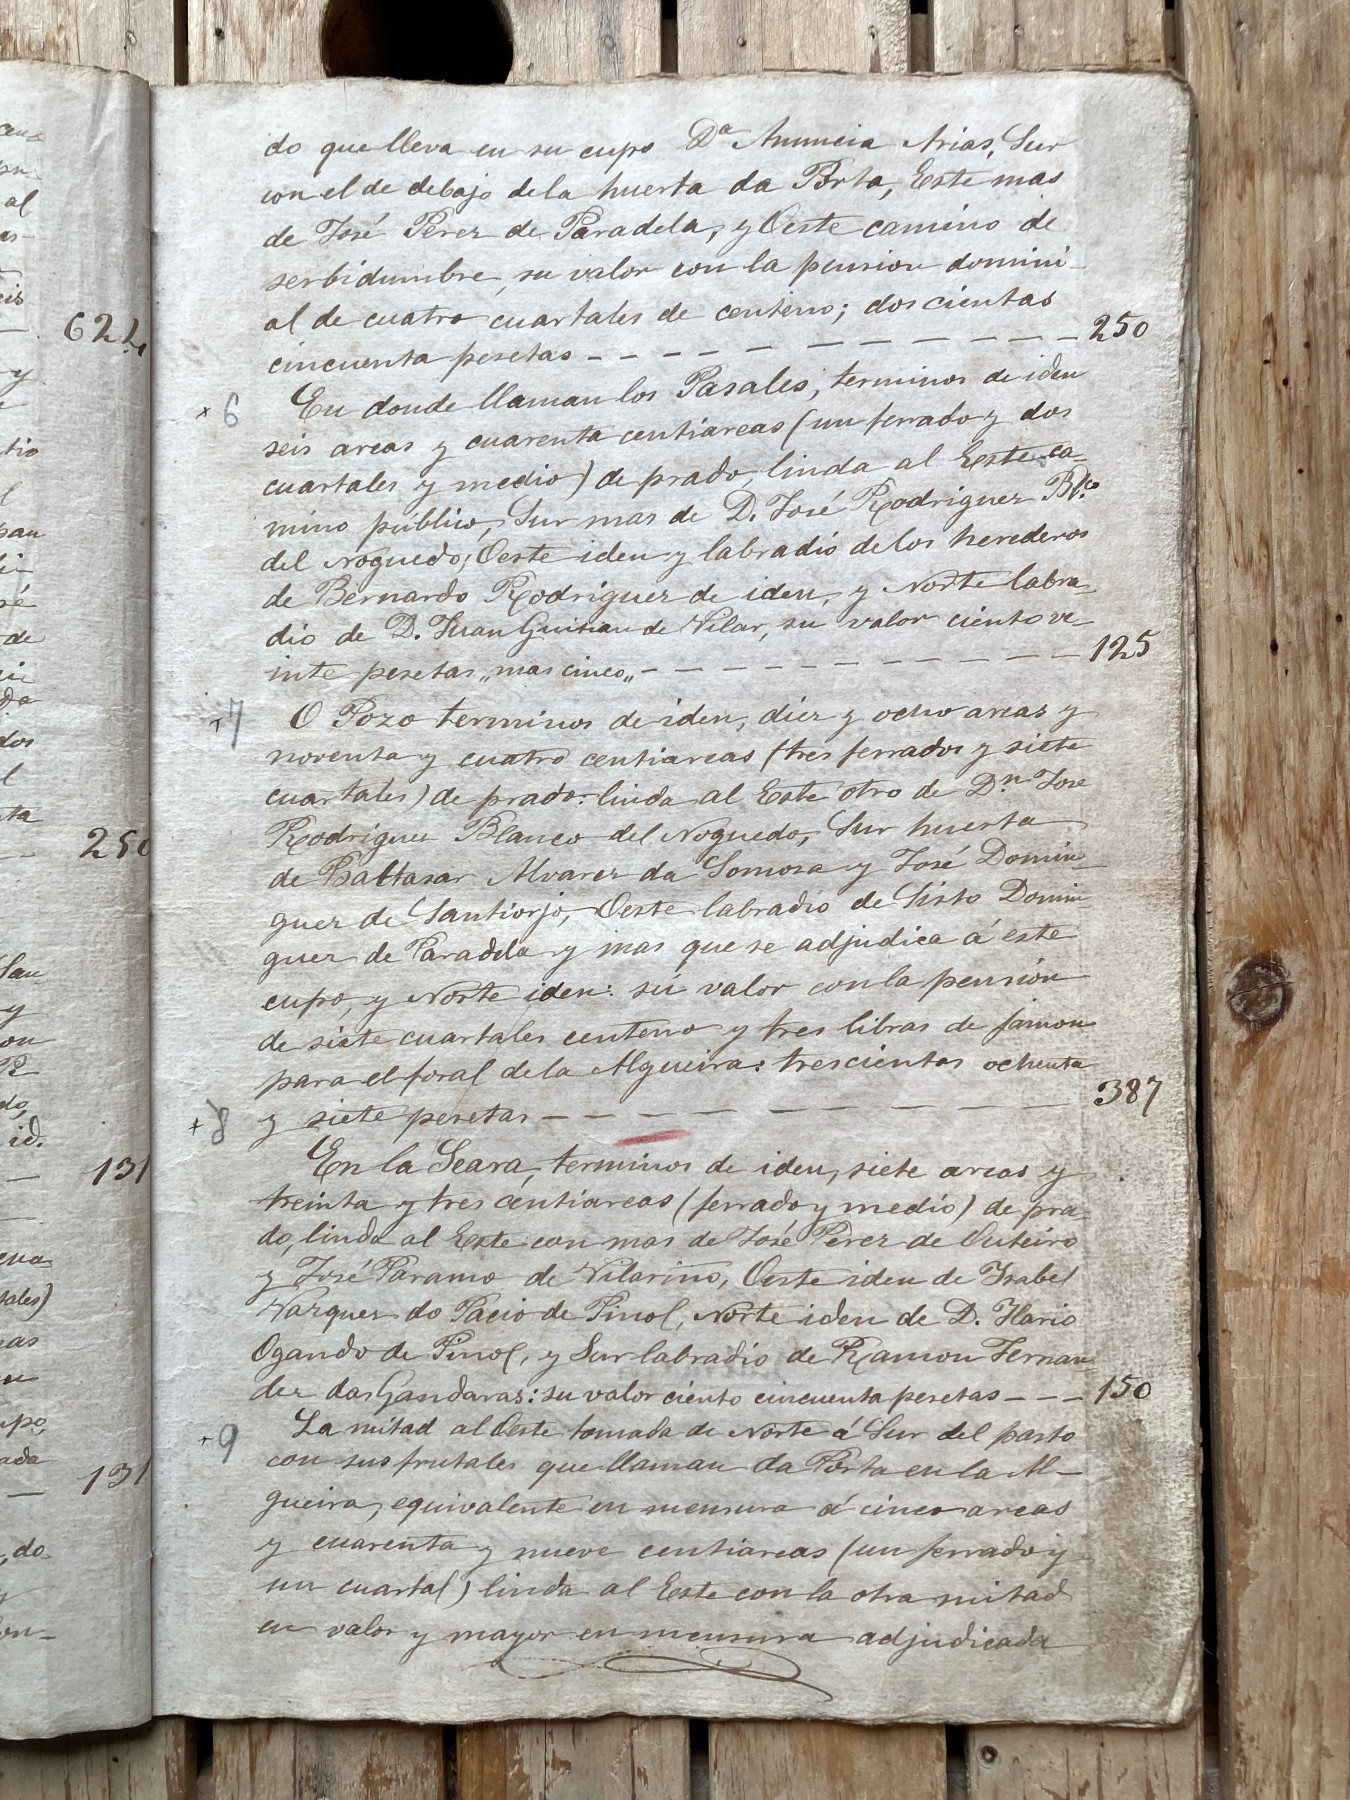 do que lleva en su cupo Dª Anuncia Arias, Sur
con el de debajo de la huerta da Porta, Este mas
de José Perez de Paradela, y Oeste camino de
serbidumbre, su valor con la pension domini-
al de cuatro cuartales de centeno; doscientas
cincuenta pesetas - - - - - - - - - - - - 250
+ 6 En donde llaman los Pasales, terminos de iden
seis areas y cuarenta centiareas (un ferrado y dos
cuartales y medio) de prado, linda al Este ca-
mino público, Sur mas de D. José Rodriguez Bl.co
del Noguedo, Oeste iden y labradio de los herederos
de Bernardo Rodriguez de iden, y Norte labra-
dio de D. Juan Guitian de Vilar, su valor ciento ve-
inte pesetas „mas cinco„ - - - - - - - - - - - 125
+ 7 O Pozo terminos de iden, diez y ocho areas y
noventa y cuatro centiareas (tres ferrados y siete
cuartales) de prado: linda al Este otro de D.n José
Rodriguez Blanco del Noguedo, Sur huerta
de Baltasar Alvarez da Somosa y José Domin-
guez de Santiorjo, Oeste labradio de Sisto Domin-
guez de Paradela y mas que se adjudica á este
cupo, y Norte iden: sú valor con la pensión
de siete cuartales centeno y tres libras de jamon
para el foral de la Algueira: trescientas ochenta
y siete pesetas - - - - - - - - - - - 387
+ 8 En la Seara, terminos de iden, siete areas y
treinta y tres centiareas (ferrado y medio) de pra-
do, linda al Este con mas de José Perez de Outeiro
y José Paramo de Vilariño, Oeste iden de Ysabel
Vazquez do Pacio de Pinol, Norte iden de D. Ylario
Ogando de Pinol, y Sur labradio de Ramon Fernan-
dez das Gandaras: su valor ciento cincuenta pesetas - - - 150
+ 9 La mitad al Oeste tomada de Norte á Sur del pasto
con sus frutales que llaman da Porta en la Al-
gueira, equivalente en mensura á cinco areas
y cuarenta y nueve centiareas (un ferrado y
un cuartal) linda al Este con la otra mitad
en valor y mayor en mensura adjudicada
622
250
131
131